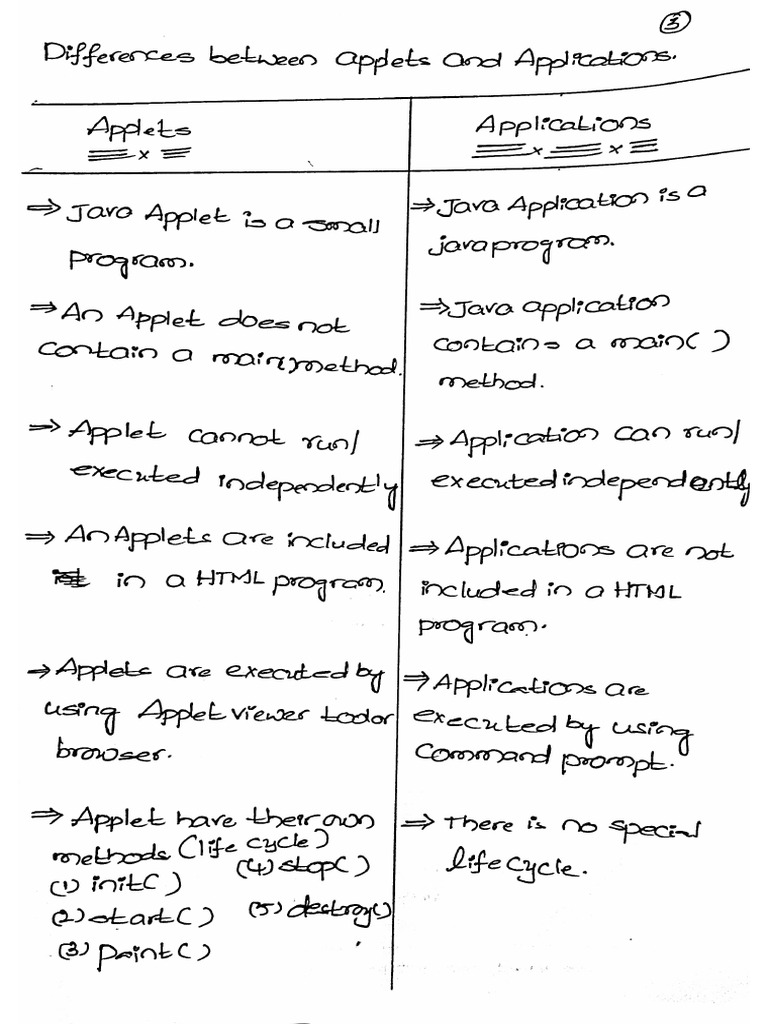 3
Differences between applets and Applications.
Applets
Java Applet is a small
program.
An Applet does not
contain a main()method.
Applet cannot run/
executed independently
An Applets are included
in a HTML program.
Applets are executed by
using Applet viewer
browser.
Applet have their own
methods (life cycle)
(1) init()
(4) stop()
(2) start()
(5) destroy()
(3) paint()
Applications
Java Application is a
java program.
Java application
contains a main()
method.
Application can run/
executed independently
Applications are not
included in a HTML
program.
Applications are
executed by using
Command prompt.
There is no special
life cycle.